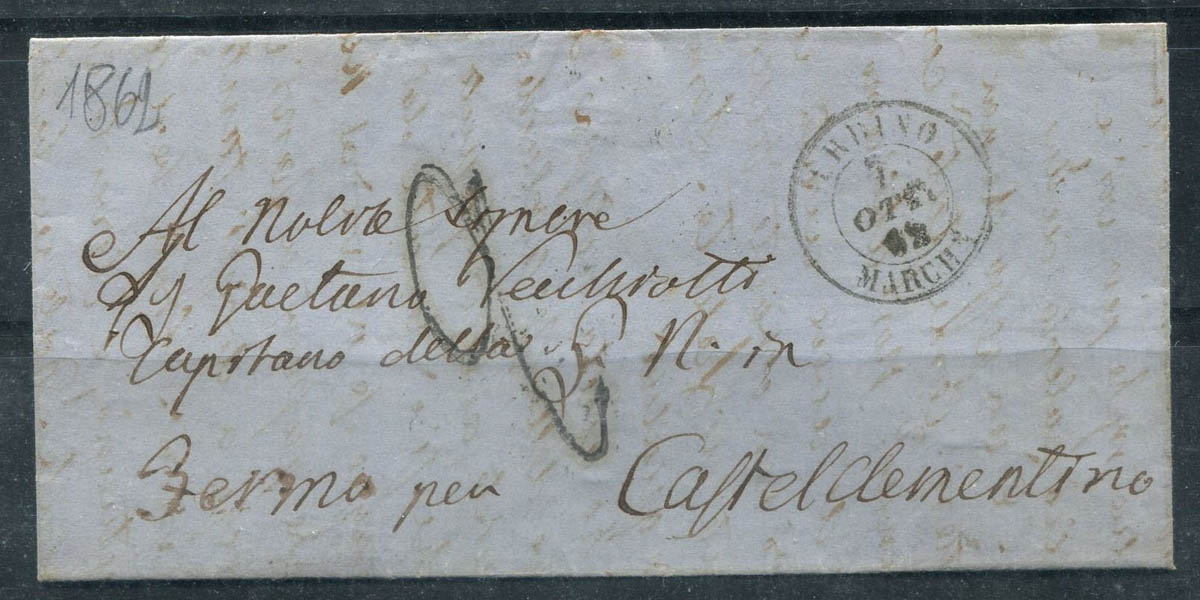 1862
URBINO
7
OTTE
62
MARCHE
Al Signore
Gaetano Vecchiotti
Capitano della G. N. in
Fermo per Castelclementino